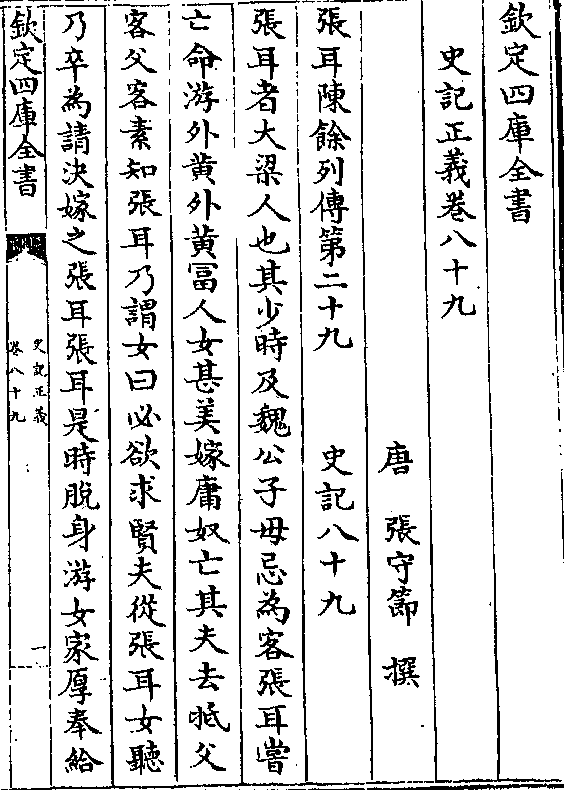 欽定四庫全書
史記正義卷八十九
唐 張守節 撰
張耳陳餘列傳第二十九 史記八十九
張耳者大梁人也其少時及魏公子毋忌為客張耳嘗
亡命游外黄外黄冨人女甚美嫁庸奴亡其夫去抵父
客父客素知張耳乃謂女曰必欲求賢夫從張耳女聽
乃卒為請決嫁之張耳張耳是時脫身游女家厚奉給
欽定四庫全書
史記正義
卷八十九
一